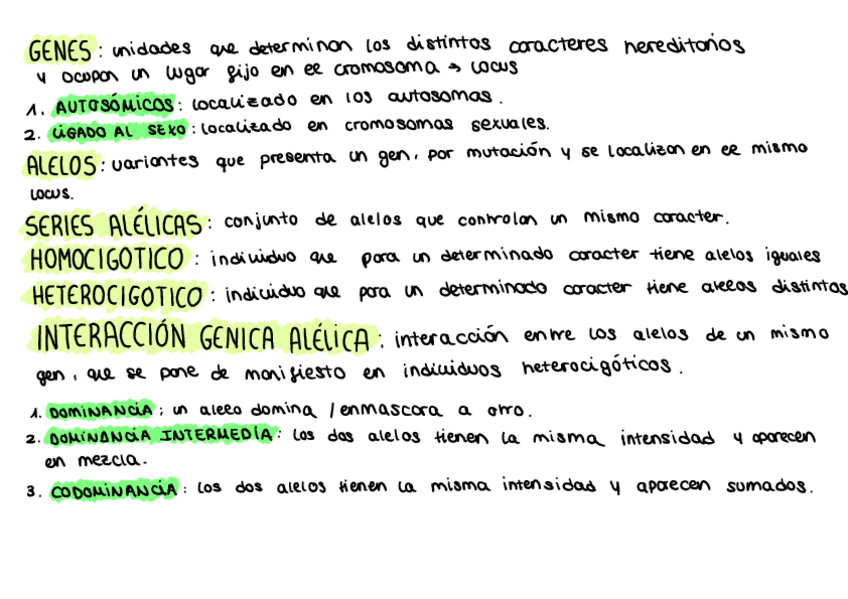 GENES: unidades que determinan los distintos caracteres hereditarios
y ocupan un lugar fijo en el cromosoma → locus
1. AUTOSÓMICOS: localizado en los autosomas.
2. LIGADO AL SEXO: localizado en cromosomas sexuales.
ALELOS: variantes que presenta un gen, por mutación y se localizan en el mismo
locus.
SERIES ALÉLICAS: conjunto de alelos que controlan un mismo caracter.
HOMOCIGOTICO: individuo que para un determinado caracter tiene alelos iguales
HETEROCIGOTICO: individuo que para un determinado caracter tiene alelos distintos
INTERACCIÓN GENICA ALÉLICA: interacción entre los alelos de un mismo
gen, que se pone de manifiesto en individuos heterocigóticos.
1. DOMINANCIA: un alelo domina / enmascara a otro.
2. DOMINANCIA INTERMEDIA: los dos alelos tienen la misma intensidad y aparecen
en mezcla.
3. CODOMINANCIA: los dos alelos tienen la misma intensidad y aparecen sumados.